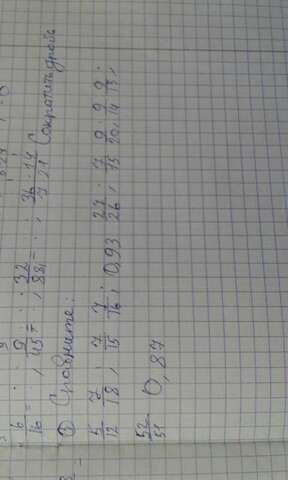 6/16 = .. , 9/45 = .. , 32/88 = .. , 36·14/7·1 Сократить дробь
① Сравните:
5/12 7/18 , 7/15 7/16 , 0,93 27/26 , 7/15 9/20 , 9/14 9/13 ,
52/51 0,87